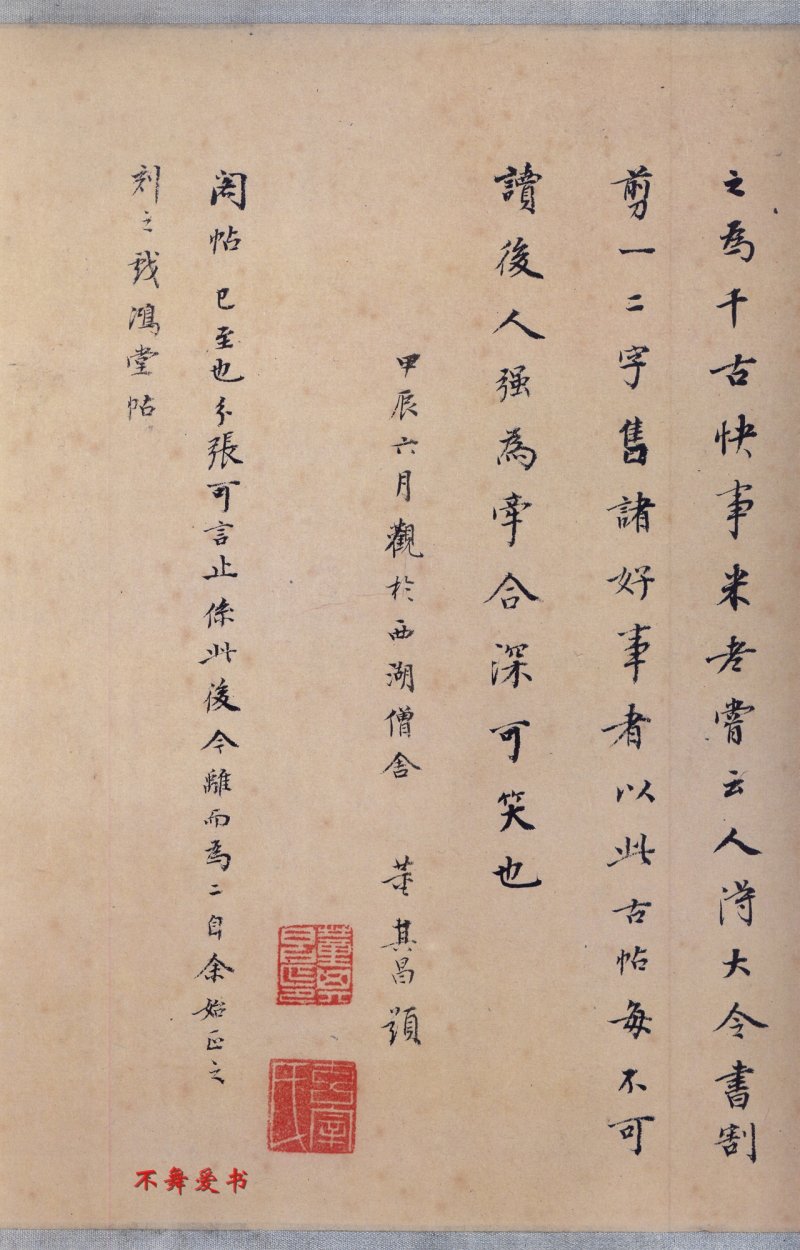 之為千古快事米老嘗云人得大令書割
剪一二字售諸好事者以此古帖每不可
讀後人强為牽合深可笑也
甲辰六月觀於西湖僧舍 董其昌題
閣帖已至也分張可言止係此後今離而為二自余始正之
刻之戲鴻堂帖
不舞爱书